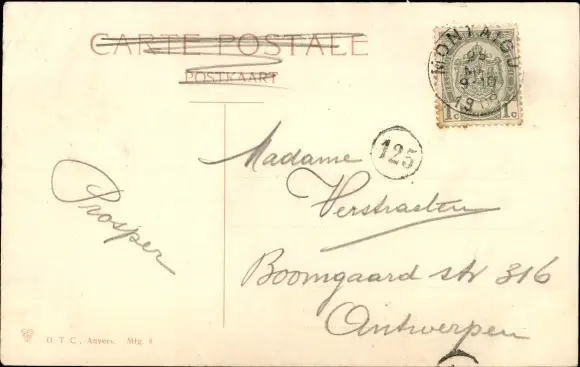 CARTE POSTALE
POSTKAART
MONTAIGU
1c 1c
125
Madame
Verstraeten
Boomgaard str 316
Antwerpen
Prosper
D. T. C., Anvers. Mtg 4